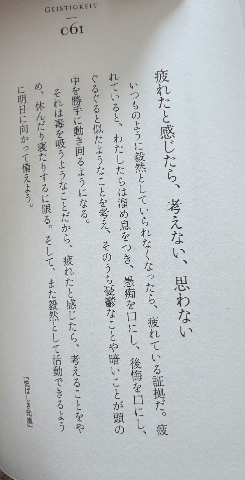 GEISTIGKEIT
061
疲れたと感じたら、考えない、思わない
いつものように毅然としていられなくなったら、疲れている証拠だ。疲
れていると、わたしたちは溜め息をつき、愚痴を口にし、後悔を口にし、
ぐるぐると似たようなことを考え、そのうち憂鬱なことや暗いことが頭の
中を勝手に動き回るようになる。
それは毒を吸うようなことだから、疲れたと感じたら、考えることをや
め、休んだり寝たりするに限る。そして、また毅然として活動できるよう
に明日に向かって備えよう。
『悦ばしき知識』